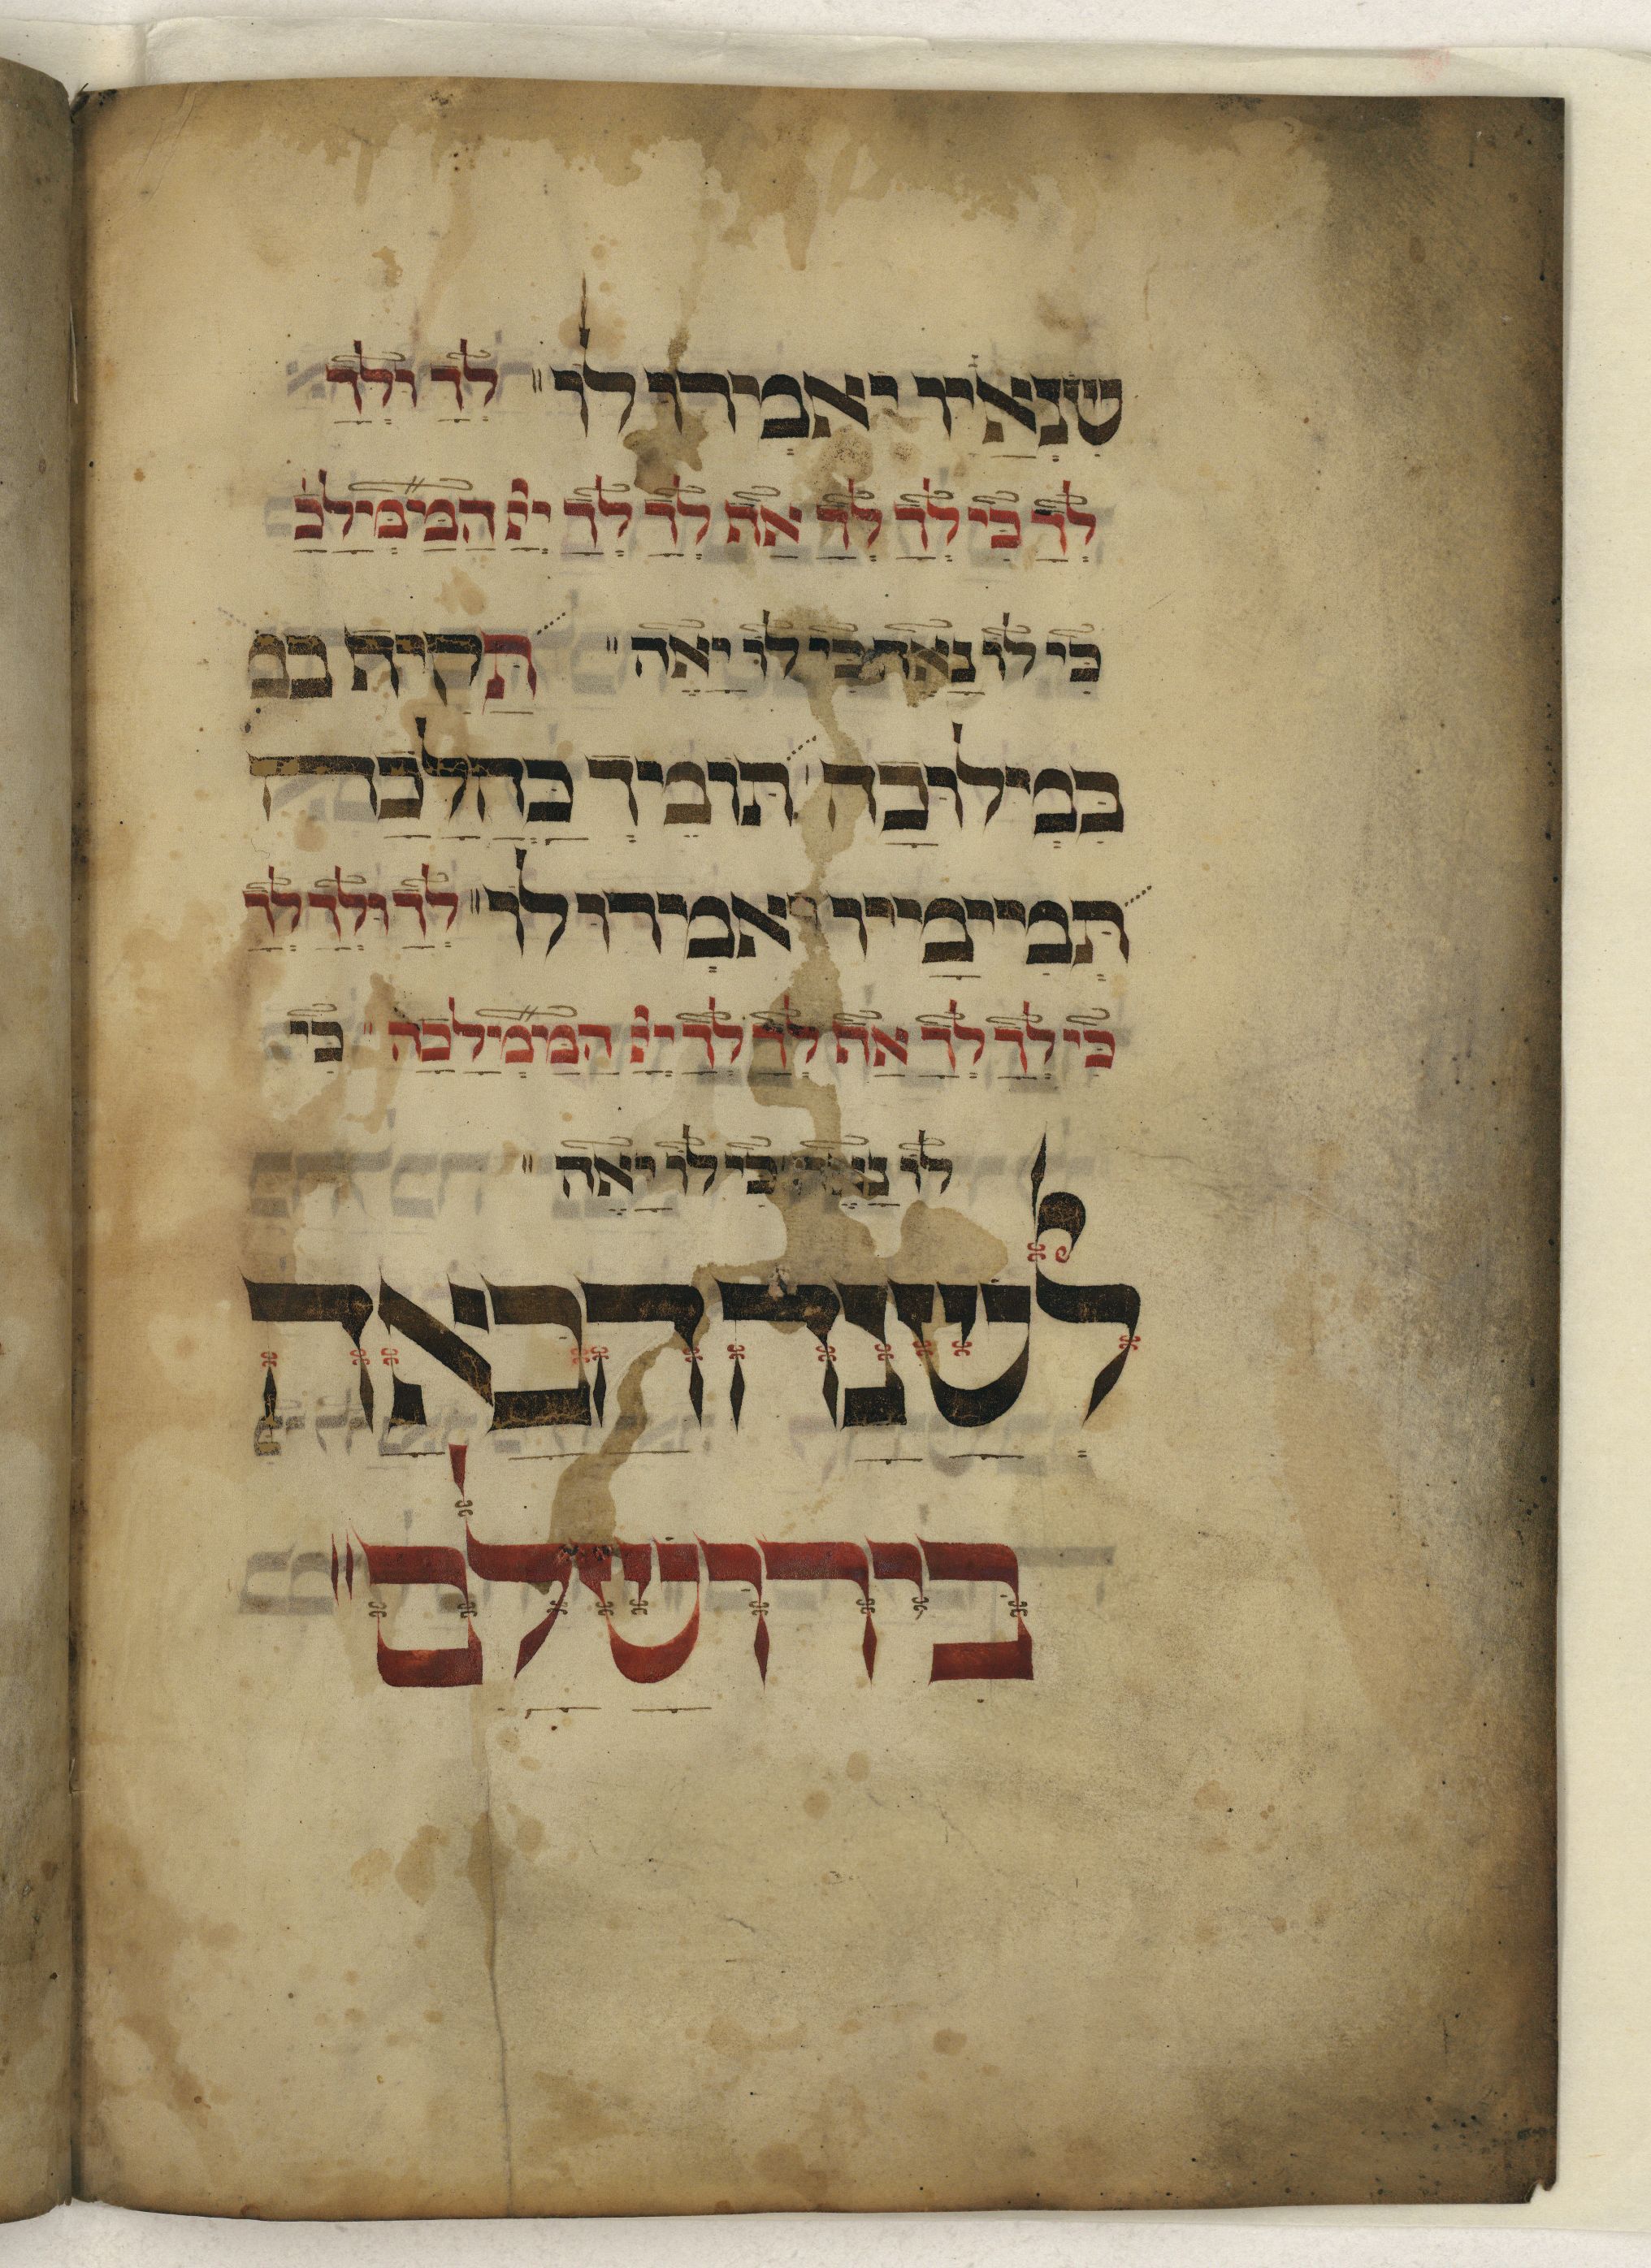 שנאיו יאמירו לו׃ לך ולך
לך כי לך לך אף לך לך יי הממילכ
כי לו נאה כי לו יאה׃ תקיף במ
במילוכה תומיך כהלכה
תמיימייו יאמירו לו׃ לך ולך לך
כי לך לך אף לך לך יי הממילכה׃ כי
לו נאה כי לו יאה׃
לשנה הבאה
בירושלם׃